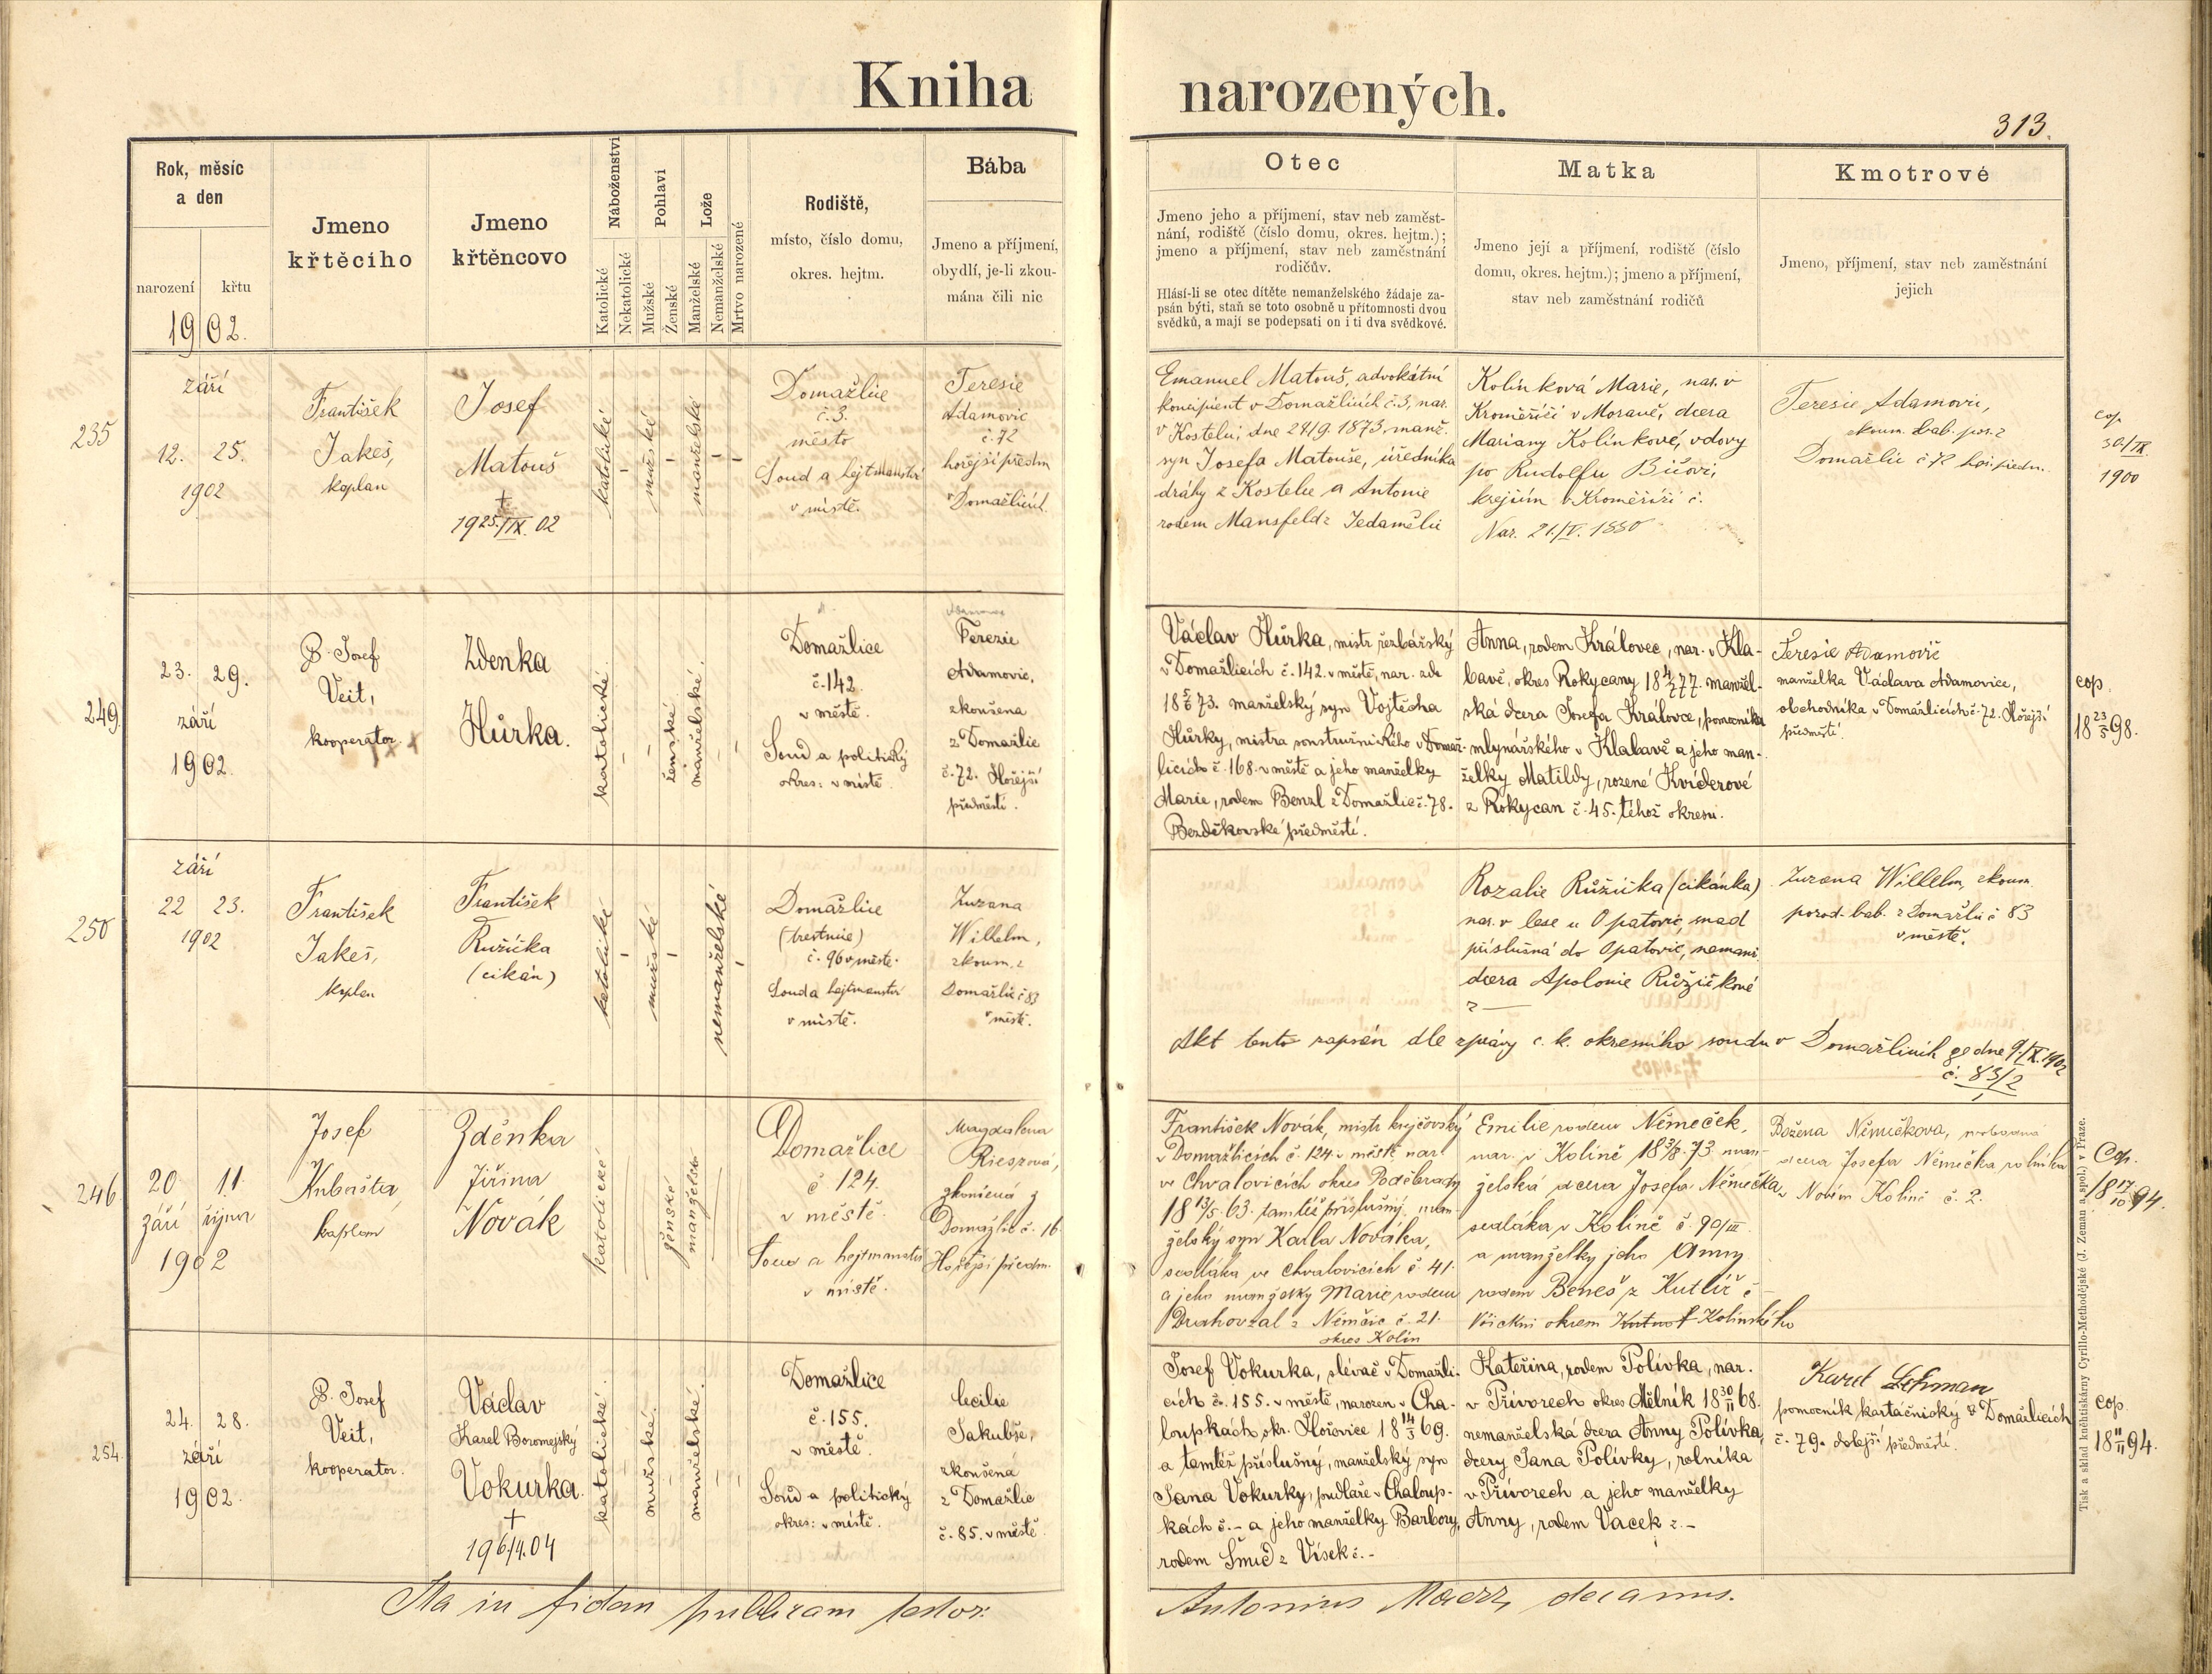 Kniha narozených.
313.
Rok, měsíc
a den
narození
křtu
1902.
Jmeno
křtěcího
Jmeno
křtěncovo
Náboženství
Katolické
Nekatolické
Pohlaví
Mužské
Ženské
Lože
Manželské
Nemanželské
Mrtvo narozené
Rodiště,
místo, číslo domu,
okres. hejtm.
Bába
Jmeno a příjmení,
obydlí, je-li zkou-
mána čili nic
Otec
Jmeno jeho a příjmení, stav neb zaměst-
nání, rodiště (číslo domu, okres. hejtm.);
jmeno a příjmení, stav neb zaměstnání
rodičův.
Hlásí-li se otec dítěte nemanželského žádaje za-
psán býti, staň se toto osobně u přítomnosti dvou
svědků, a mají se podepsati on i ti dva svědkové.
Matka
Jmeno její a příjmení, rodiště (číslo
domu, okres. hejtm.); jmeno a příjmení,
stav neb zaměstnání rodičů
Kmotrové
Jmeno, příjmení, stav neb zaměstnání
jejich
235
září
12. 25.
1902
František
Jakeš,
kaplan
Josef
Matouš
†
1925./IX. 02
katolické
mužské
manželské
Domažlice
č. 3.
město
Soud a hejtmanství
v místě.
Teresie
Adamovic
č. 72
hořejší předm
v Domažlicích
Emanuel Matouš, advokátní
koncipient v Domažlicích č. 3, nar.
v Kostelci, dne 24/9 1873, manž.
syn Josefa Matouše, úředníka
dráhy z Kostelce a Antonie
rodem Mansfeld z
Kolínková Marie, nar. v
Kroměříži v Moravě, dcera
Mariany Kolínkové, vdovy
po Rudolfu
krejčím v Kroměříži č.
Nar. 21./V. 1880
Teresie Adamovic,
zkoum. bab. por. z
Domažlic č 72 hoř. předm.
cop.
30./IX.
1900
249.
23. 29.
září
1902.
P. Josef
Veit,
kooperator.
Zdenka
Hůrka.
katolické.
ženské
manželské.
Domažlice
č. 142.
v městě.
Soud a politický
okres: v místě.
Terezie
Adamovic,
zkoušená
z Domažlic
č. 72. Hořejší
předměstí.
Václav Hůrka, mistr řezbářský
v Domažlicích č. 142. v městě, nar. zde
18 5/6 73. manželský syn Vojtěcha
Hůrky, mistra soustružnického v Domaž-
licích č. 168. v městě a jeho manželky
Marie, rodem Benzl z Domažlic č. 78.
Bezděkovské předměstí.
Anna, rodem Královec, nar. v Kla-
bavě, okres Rokycany 18 4/7 77. manžel-
ská dcera Josefa Královce, pomocníka
mlynářského v Klabavě a jeho man-
želky Matildy, rozené Kviderové
z Rokycan č. 45. téhož okresu.
Teresie Adamovič
manželka Václava Adamovice,
obchodníka v Domažlicích č. 72. Hořejší
předměstí.
cop.
18 23/5 98.
250
září
22 23.
1902
František
Jakeš,
kaplan
František
Růžička
(cikán)
katolické
mužské
nemanželské
Domažlice
(trestnice)
č. 96 v městě.
Soud a hejtmanství
v místě.
Zuzana
Wilhelm,
zkoum. z
Domažlic č 83
v městě.
Rozalie Růžička (cikánka)
nar. v lese u Opatovic, snad
příslušná do Opatovic, nemanž.
dcera Apolonie Růžičkové
z —
Zuzana Wilhelm, zkoum.
porod. bab. z Domažlic č 83
v městě.
Akt tento zapsán dle zprávy c. k. okresního soudu v Domažlicích ze dne 9./X. 1902
č. 83/2
246
20 11
září října
1902
Josef
Kubašta,
kaplan
Zděnka
Jiřina
Novák
katolické
ženské
manželské
Domažlice
č. 124.
v městě.
Soud a hejtmanství
v místě.
Magdalena
Rieszová,
zkoušená z
Domažlic č. 16
Hořejší předm.
František Novák, mistr krejčovský
v Domažlicích č. 124 v městě nar.
ve Chvalovicích okres Poděbrady
18 13/5. 63. tamtéž příslušný, man-
želský syn Karla Nováka,
sedláka ve Chvalovicích č. 41.
a jeho manželky Marie rodem
Drahovzal z Němčic č. 21.
okres Kolín
Emilie rodem Němeček,
nar. v Kolíně 18 3/8. 73 man-
želská dcera Josefa Němečka,
sedláka v Kolíně č. 90/III
a manželky jeho Anny
rodem Beneš z Kutlíř č –
okresu Kolínského
Božena Němečkova,
dcera Josefa Němečka rolníka
v Novém Kolíně č. 2.
Cop.
18 17/10 94.
254.
24. 28.
září
1902.
P. Josef
Veit,
kooperator.
Václav
Karel Boromejský
Vokurka.
†
196/4.04
katolické.
mužské.
manželské.
Domažlice
č. 155.
v městě.
Soud a politický
okres: v místě.
Cecilie
Jakubše,
zkoušená
z Domažlic
č. 85. v městě
Josef Vokurka, slévač v Domažli-
cích č. 155. v městě, narozen v Cha-
loupkách okr. Hořovice 18 14/3 69.
a tamtéž příslušný, manželský syn
Jana Vokurky, pudláře v Chaloup-
kách č. – a jeho manželky Barbory,
rodem Šmíd z Vísek č. –
Kateřina, rodem Polívka, nar.
v Přívorech okres Mělník 18 30/11 68.
nemanželská dcera Anny Polívka,
dcery Jana Polívky, rolníka
v Přívorech a jeho manželky
Anny, rodem Vacek z. –
Karel Lehman
pomocník kartáčnický v Domažlicích
č. 79. dolejší předměstí.
cop.
18 11/11 94.
Ita in fidem publicam testor:
Antonius Maerz, decanus.
Tisk a sklad knihtiskárny Cyrillo-Methodějské (J. Zeman a spol.) v Praze.